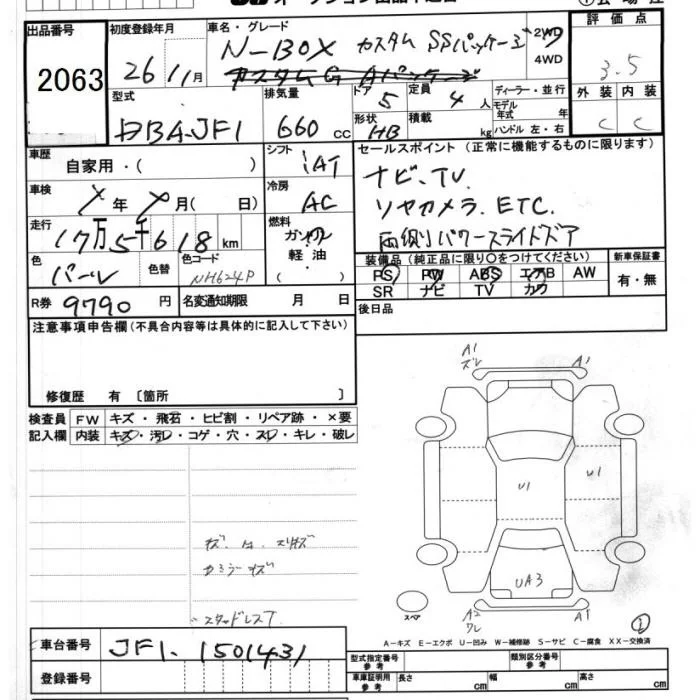 出品番号
2063
初度登録年月
26年 1月
車名・グレード
N-BOX カスタム SSパッケージ
カスタムG Aパッケージ
2WD
4WD
評価点
3.5
外装 内装
C C
型式
DBA-JF1
排気量
660 cc
ドア
5
定員
4 人
形状
HB
積載
kg
ディーラー・並行
モデル年式 年
ハンドル 左・右
車歴
自家用・( )
シフト
IAT
車検
年 月( 日)
冷房
AC
走行
17万5千618 km
燃料
ガソリン
軽油・
( )
色
パール
色替
色コード
NH624P
R券
9790 円
名変通知期限 月 日
セールスポイント(正常に機能するものに限ります)
ナビ、TV.
リヤカメラ. ETC.
両側パワースライドドア
装備品(純正品に限り○をつけてください)
PS PW ABS エアB AW
SR ナビ TV カワ
新車保証書
有・無
後日品
注意事項申告欄(不具合内容等は具体的に記入して下さい)
修復歴 有 〔箇所 〕
検査員記入欄
FW キズ・飛石・ヒビ割・リペア跡・×要
内装 キズ・汚レ・コゲ・穴・スレ・キレ・破レ
スタッドレスT
A1
ズレ
A1
U1
U1
UA3
スペア
A2
ワレ
A1
①
A-キズ E-エクボ U-凹み W-補修跡 S-サビ C-腐食 XX-交換済
車台番号
JF1-1501431
登録番号
型式指定番号
参考
類別区分番号
参考
車庫証明用
参考
長さ cm
幅 cm
高さ cm